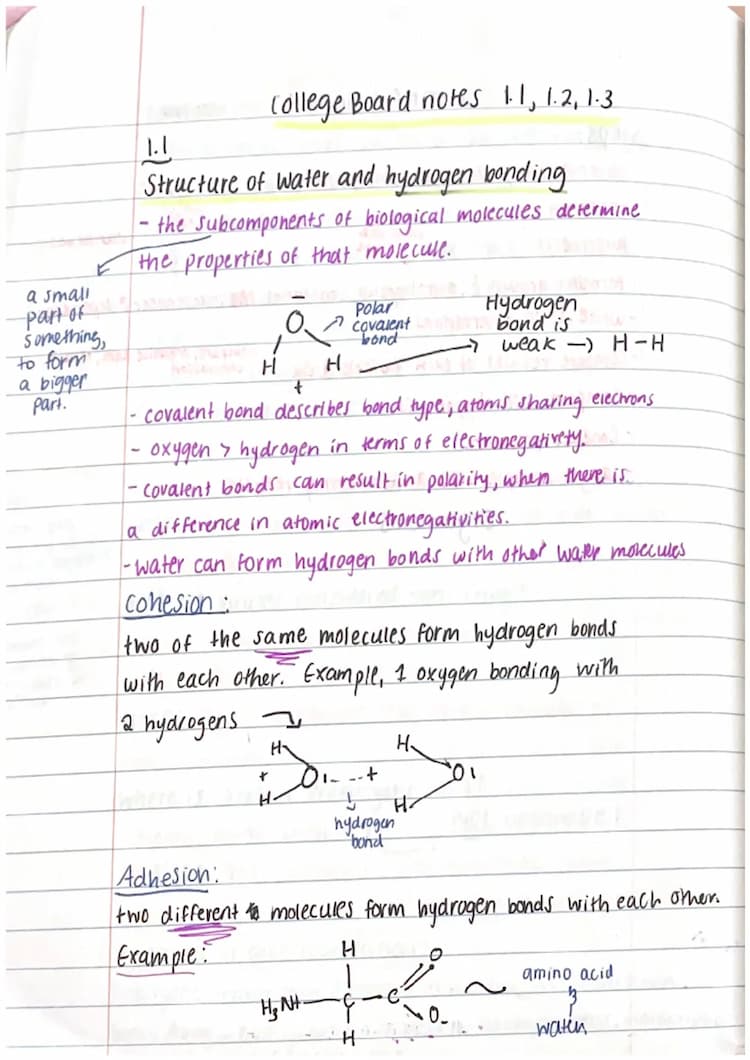 College Board notes 1.1, 1.2, 1.3
1.1
Structure of water and hydrogen bonding
- the subcomponents of biological molecules determine
the properties of that molecule.
a small
part of
something,
to form
a bigger
part.
−
O
H H
+
Polar
covalent
bond
Hydrogen
bond is
weak → H-H
- covalent bond describes bond type, atoms sharing electrons
- oxygen > hydrogen in terms of electronegativety.
- covalent bonds can result in polarity, when there is
a difference in atomic electronegativities.
- water can form hydrogen bonds with other water molecules
Cohesion:
two of the same molecules form hydrogen bonds
with each other. Example, 1 oxygen bonding with
2 hydrogens
H H
+ O - - - + O
H H
hydrogen
bond
Adhesion:
two different molecules form hydrogen bonds with each other.
Example:
H O
H3N+ — C — C
O-
H
amino acid
&
water